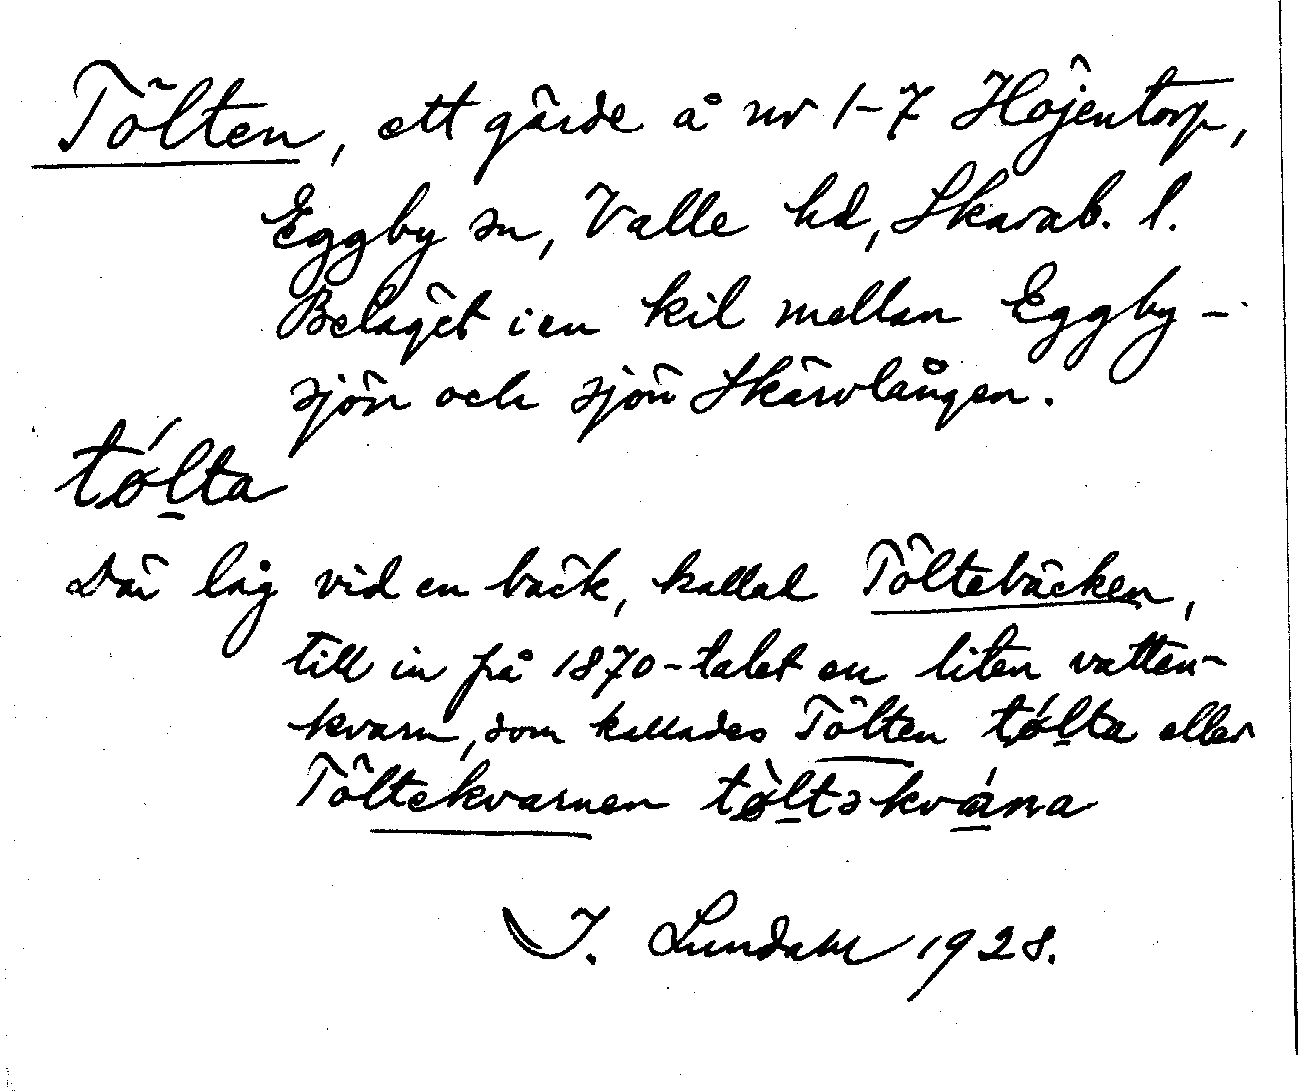 Tölten, ett gärde å nr 1-7 Höjentorp,
Eggby sn, Valle hd, Skarab. l.
Beläget i en kil mellan Eggby-
sjön och sjön Skärvlången.
tǿlta
Där låg vid en bäck, kallad Töltebäcken,
till in på 1870-talet en liten vatten-
kvarn, som kallades Tölten tǿlta eller
Töltekvarnen tø̀ltəkvá̱rna
I. Lundahl 1928.